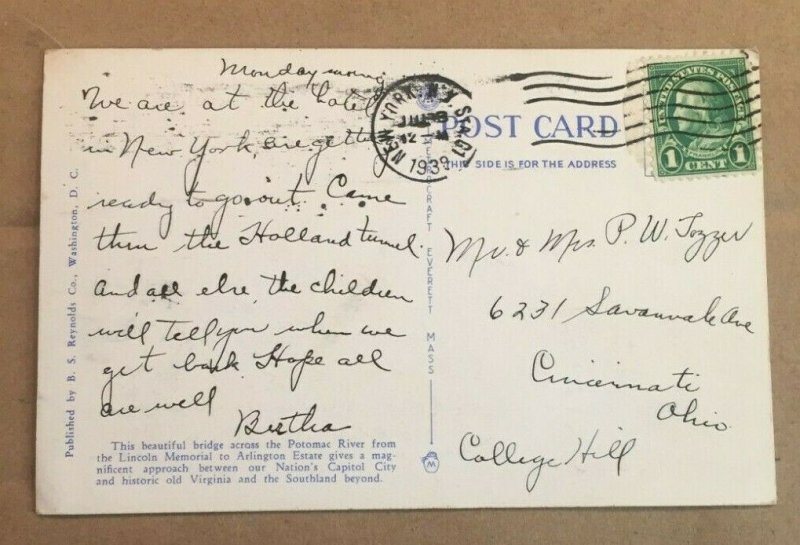 Monday morning
We are at the hotel
in New York, are getting
ready to go out. Came
thru the Holland tunnel.
and all else, the children
will tell you when we
get back Hope all
are well
Bertha
This beautiful bridge across the Potomac River from
the Lincoln Memorial to Arlington Estate gives a mag-
nificent approach between our Nation's Capitol City
and historic old Virginia and the Southland beyond.
Published by B. S. Reynolds Co., Washington, D. C.
METROCRAFT EVERETT MASS
NEW YORK, N.Y. STA.
12 M
POST CARD
THIS SIDE IS FOR THE ADDRESS
UNITED STATES POSTAGE
FRANKLIN
1 CENT 1
Mr. & Mrs. P. W. Tozzer
6231 Savannah Ave
Cincinnati
Ohio
College Hill